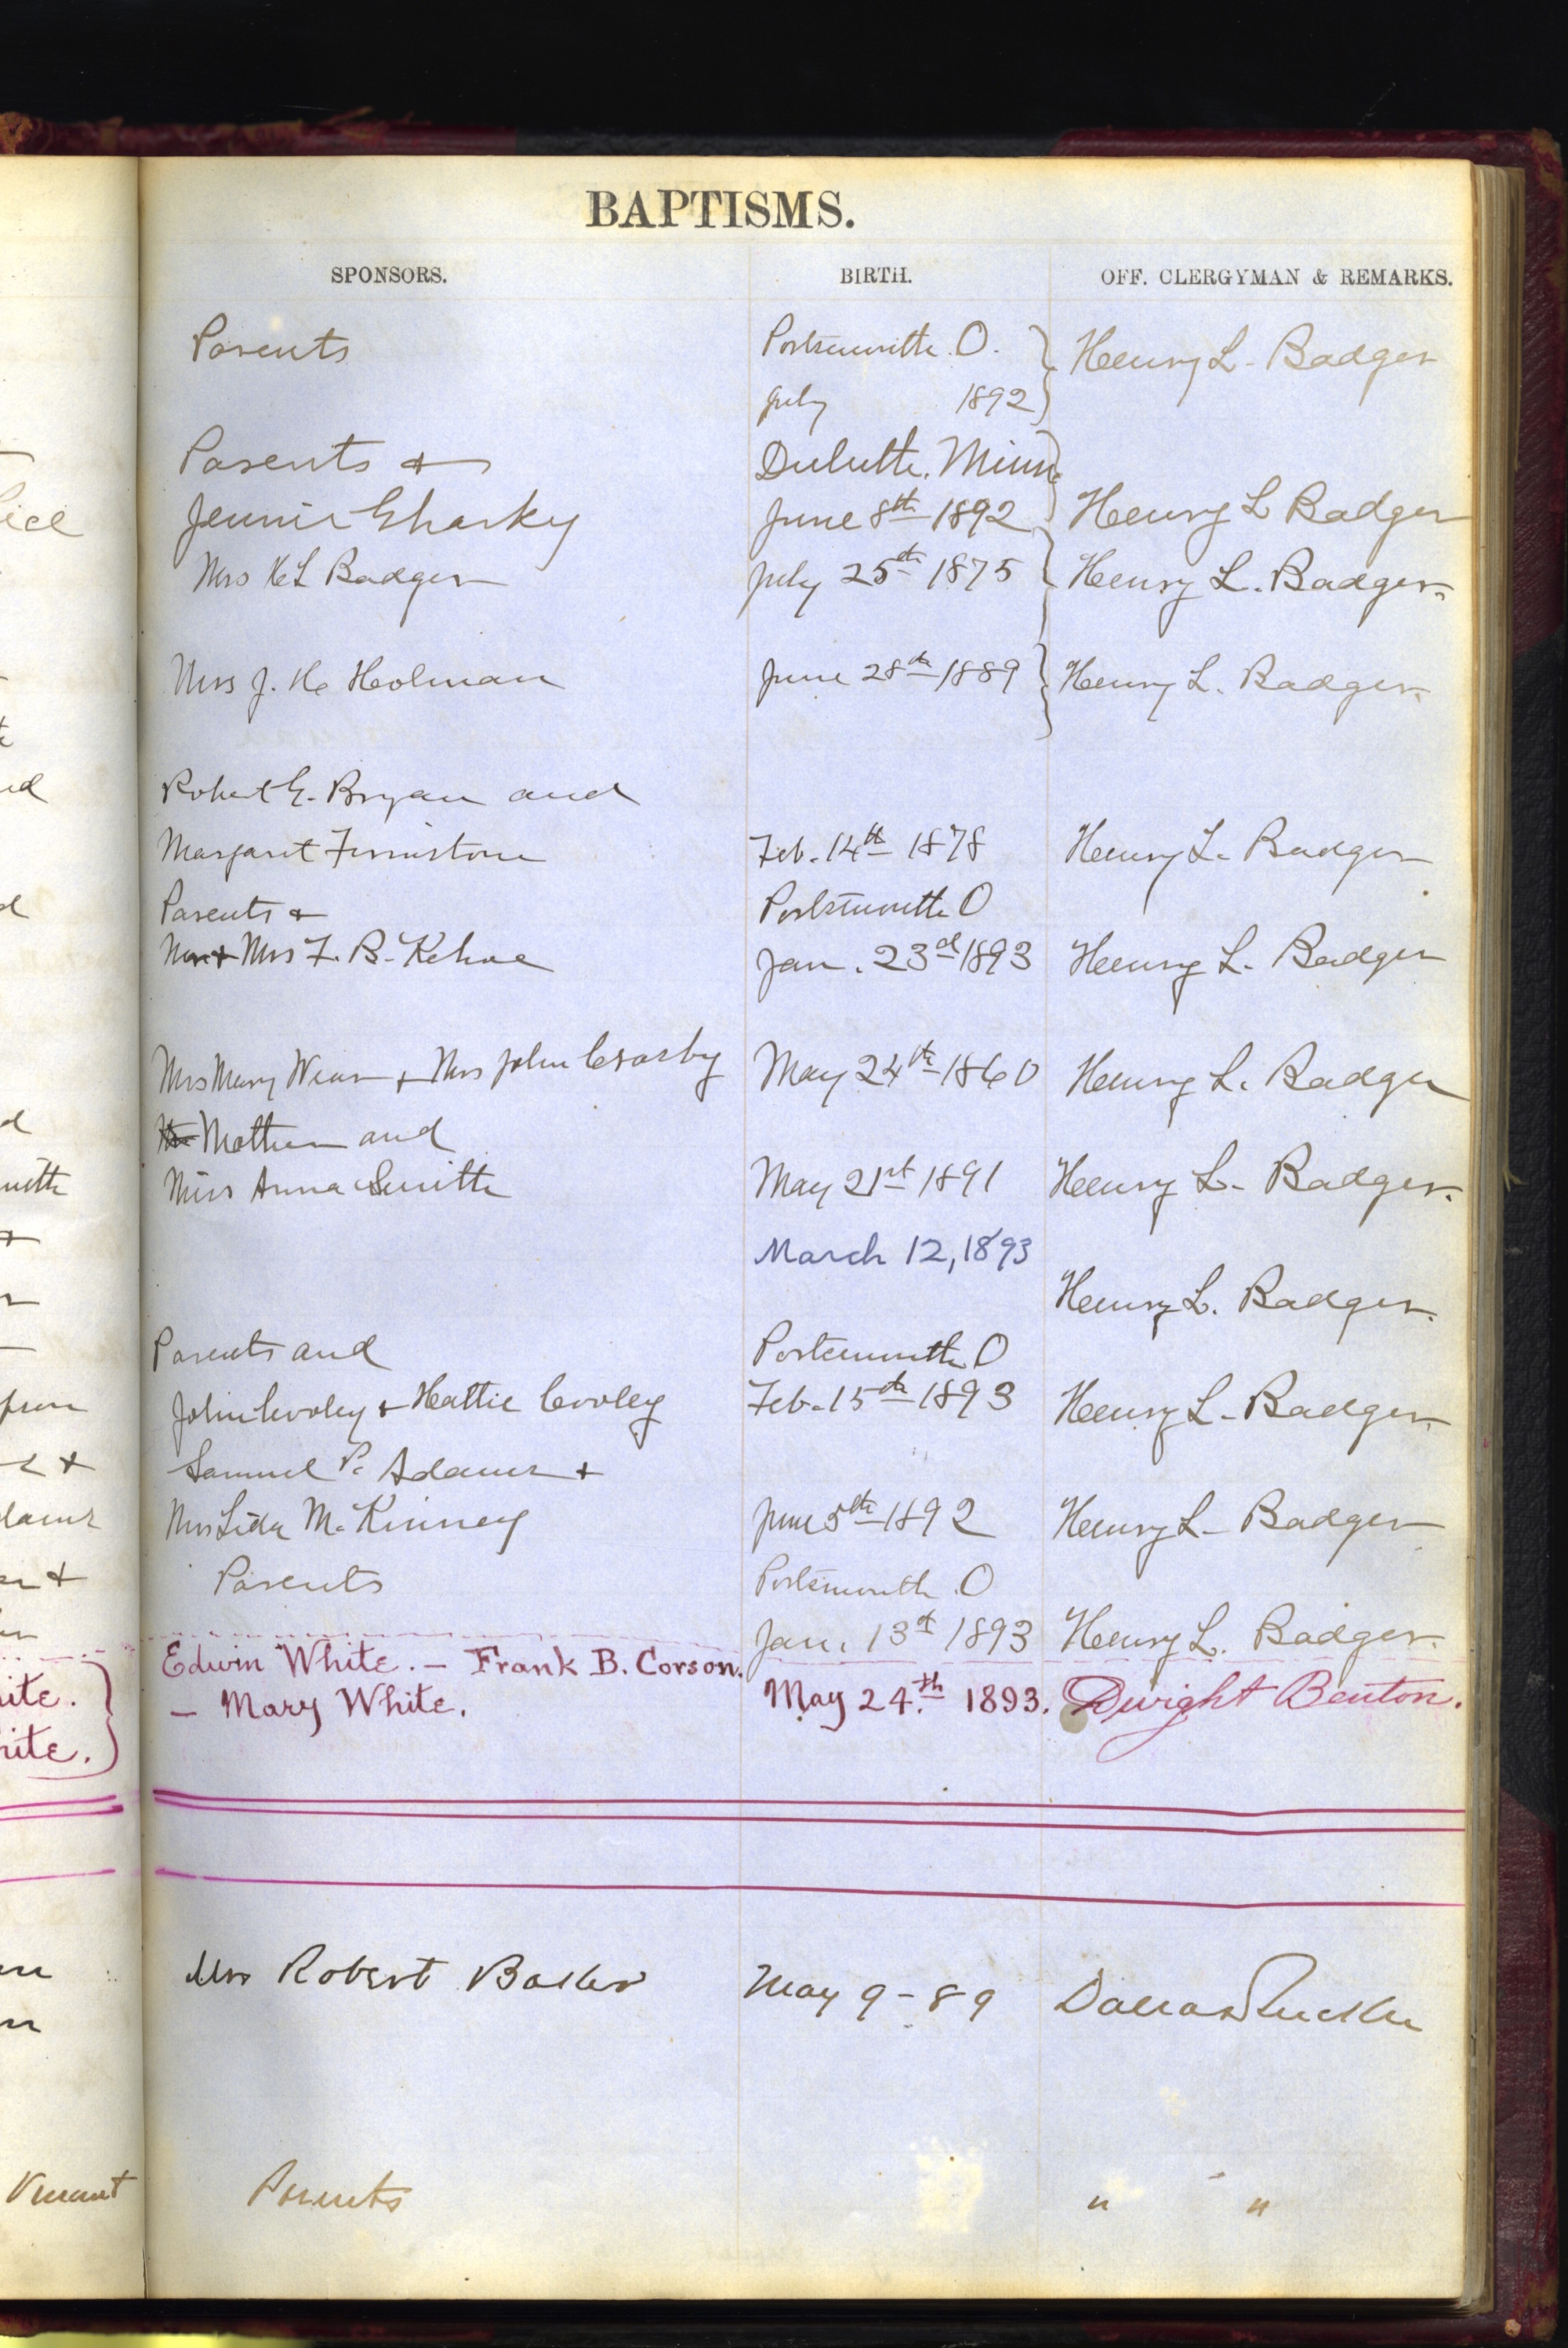 BAPTISMS.
SPONSORS. BIRTH. OFF. CLERGYMAN & REMARKS.
Parents Portsmouth O. Henry L. Badger
July 1892
Parents & Duluth. Minn
Jennie Sharky June 8th 1892 Henry L Badger
Mrs H L Badger July 25th 1875 Henry L. Badger.
Mrs J. H. Holman June 28th 1889 Henry L. Badger.
Robert E. Bryan and
Margaret Firmstone Feb. 14th 1878 Henry L. Badger
Parents & Portsmouth O
Mrs F. B. Kehoe Jan. 23d 1893 Henry L. Badger
Mrs Mary Wear & Mrs John Crosby May 24th 1860 Henry L. Badger
Mother and
Miss Anna Smith May 21st 1891 Henry L. Badger.
March 12, 1893
Henry L. Badger.
Parents and Portsmouth O
John Cooley & Hattie Cooley Feb. 15th 1893 Henry L. Badger.
Samuel P. Adams &
Mrs Lida McKinney June 5th 1892 Henry L. Badger
Parents Portsmouth O
Jan. 13th 1893 Henry L. Badger.
Edwin White. — Frank B. Corson.
ite. — Mary White. May 24.th 1893. Dwight Benton.
ite.
Mrs Robert Baker May 9 - 89 Dallas Tucker
Parents " "